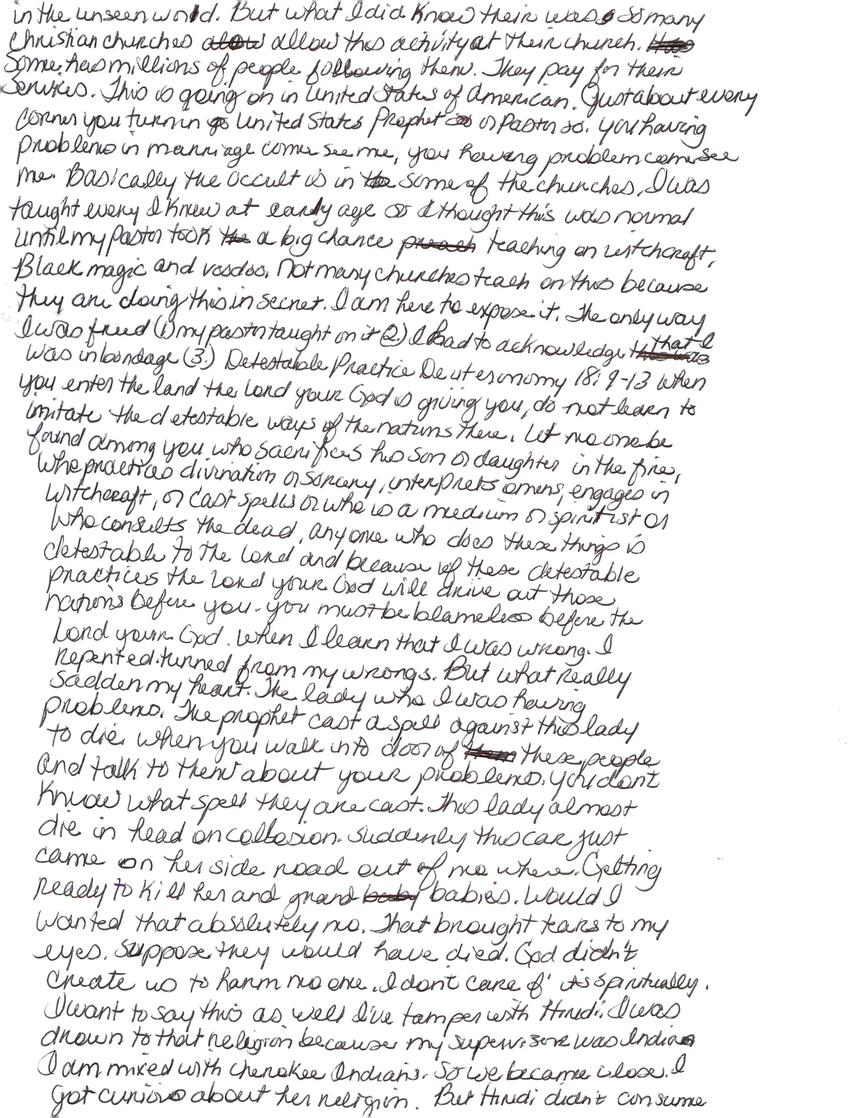 in the unseen world. But what I did know their was so many
Christian churches allow this activity at their church.
Some has millions of people following them. They pay for their
Services. This is going on in United States of American. Just about every
corner you turn in United States Prophet or Pastor so. you having
problems in marriage come see me, you having problem come see
me. Basically the occult is in some of the churches, I was
taught every I knew at early age so I thought this was normal
until my Pastor took a big chance teaching on witchcraft,
Black magic and voodoo. Not many churches teach on this because
they are doing this in secret. I am here to expose it. The only way
I was freed (1) my pastor taught on it (2.) I had to acknowledge that I
was in bondage (3.) Detestable Practice Deuteronomy 18:9-13 when
you enter the land the Lord your God is giving you, do not learn to
imitate the detestable ways of the nations there. Let no one be
found among you who sacrifices his son or daughter in the fire,
who practices divination or sorcery, interprets omens, engages in
witchcraft, or cast spells or who is a medium or spiritist or
who consults the dead, anyone who does these things is
detestable to the Lord and because of these detestable
practices the Lord your God will drive out those
nations before you. you must be blameless before the
Lord your God. When I learn that I was wrong. I
repented. turned from my wrongs. But what really
sadden my heart. The lady who I was having
problems. The prophet cast a spell against this lady
to die. when you walk into door of these people
and talk to them about your problems. you don't
know what spell they are cast. This lady almost
die in head on collosion. suddenly this car just
came on her side road out of no where. Getting
ready to kill her and grand babies. Would I
wanted that absolutely no. That brought tears to my
eyes. Suppose they would have died. God didn't
create us to harm no one. I don't care if its spiritually.
I want to say this as well I've tamper with Hindi. I was
drown to that religion because my supervisor was Indian
I am mixed with cherokee Indians. So we became close. I
got curious about her religion. But Hindi didn't consume